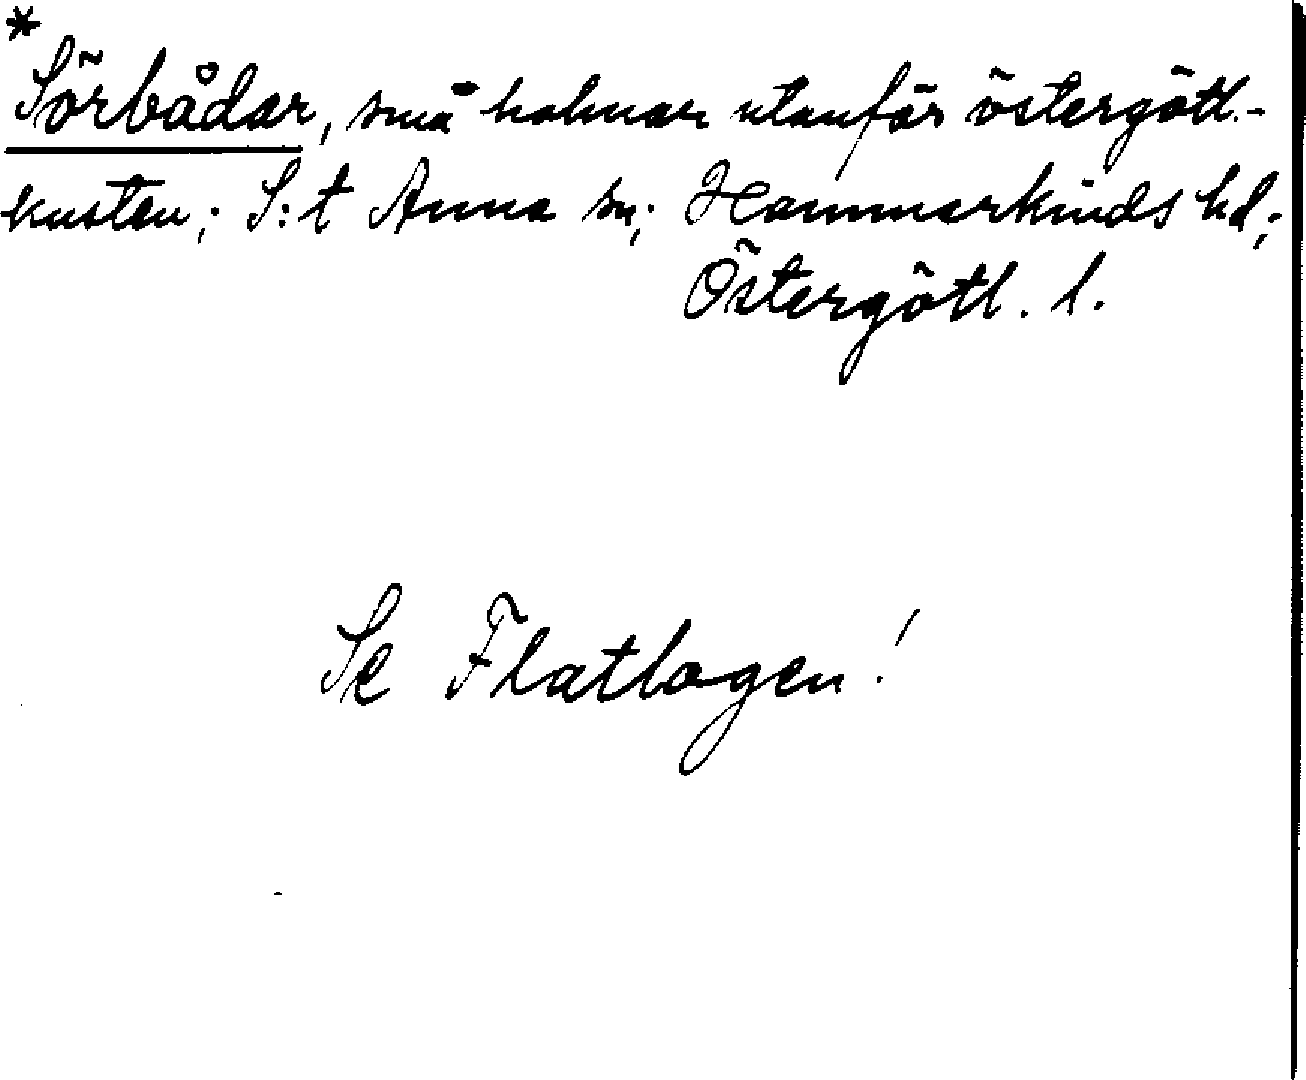 *
Sörbådar, små holmar utanför östergötl.-
kusten; S:t Anna sn; Hammarkinds hd;
Östergötl. l.
Se Flatlogen!